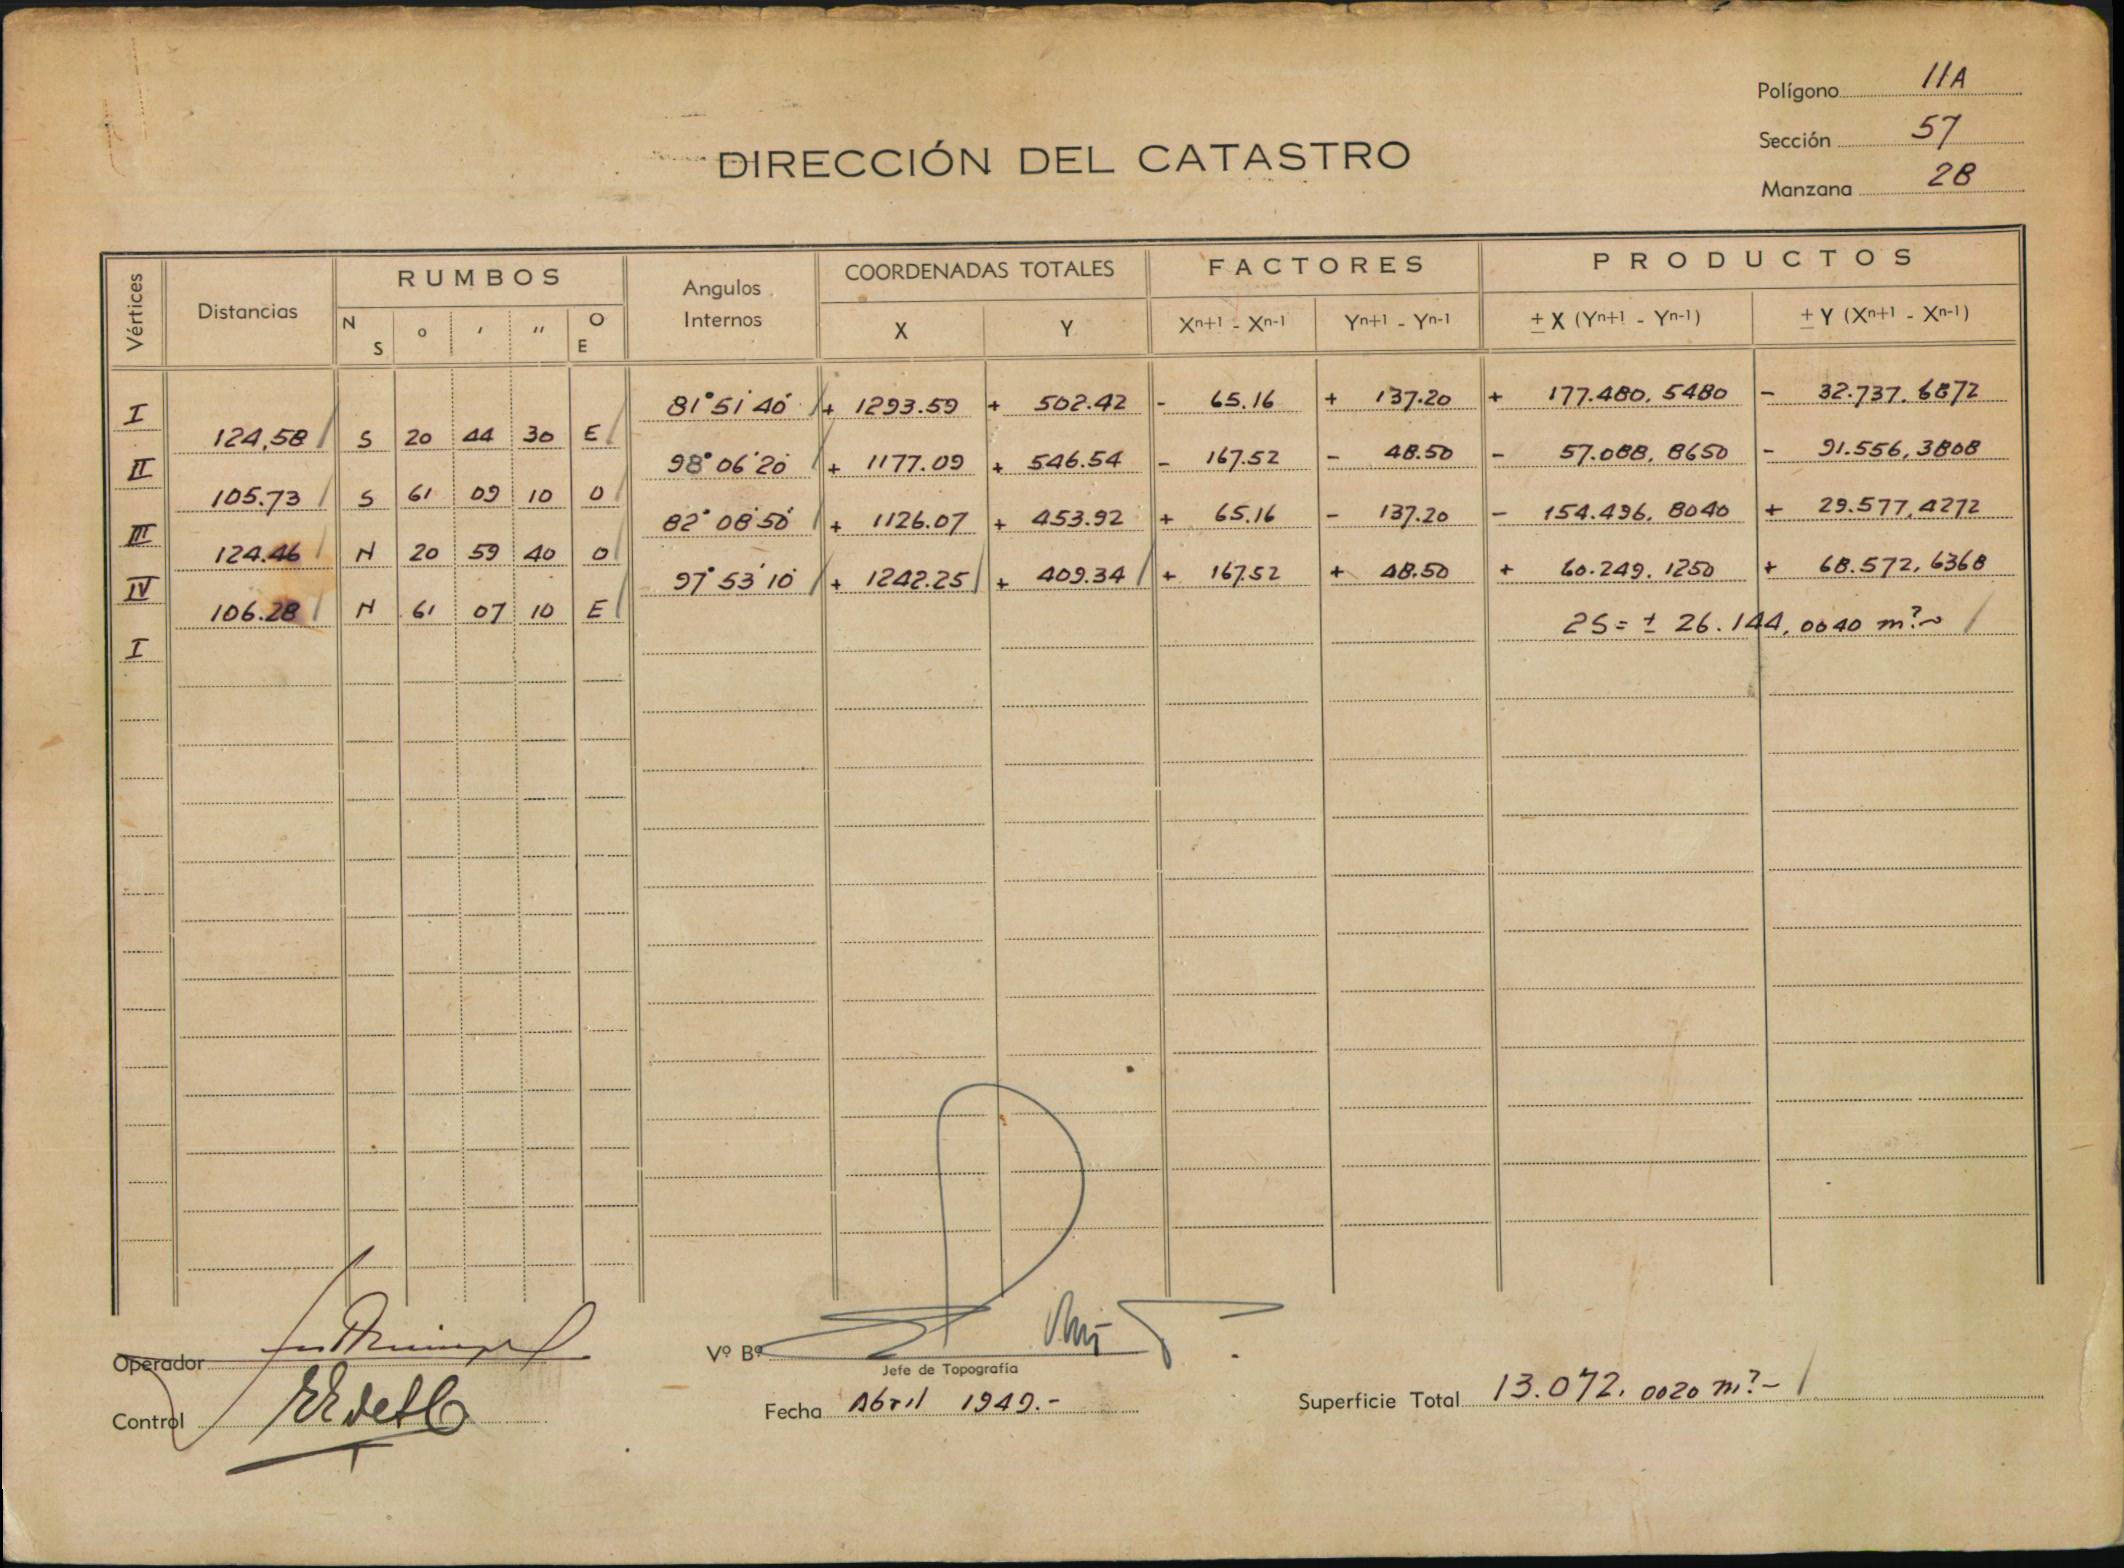 Polígono 11A
Sección 57
Manzana 28
DIRECCIÓN DEL CATASTRO
Vértices Distancias RUMBOS Angulos Internos COORDENADAS TOTALES FACTORES PRODUCTOS
N S o ' " O E X Y Xn+1 - Xn-1 Yn+1 - Yn-1 ± X (Yn+1 - Yn-1) ± Y (Xn+1 - Xn-1)
I 81° 51' 40" + 1293.59 + 502.42 - 65.16 + 137.20 + 177.480,5480 - 32.737.6872
124,58 S 20 44 30 E
II 98° 06' 20" + 1177.09 + 546.54 - 167.52 - 48.50 - 57.088,8650 - 91.556,3808
105.73 S 61 09 10 O
III 82° 08' 50" + 1126.07 + 453.92 + 65.16 - 137.20 - 154.496,8040 + 29.577,4272
124.46 N 20 59 40 O
IV 97° 53' 10" + 1242.25 + 409.34 + 167.52 + 48.50 + 60.249,1250 + 68.572,6368
106.28 N 61 07 10 E
2S = ± 26.144,0040 m²
I
Operador
Vº Bº
Jefe de Topografía
Control
Fecha Abril 1949.-
Superficie Total 13.072,0020 m².-